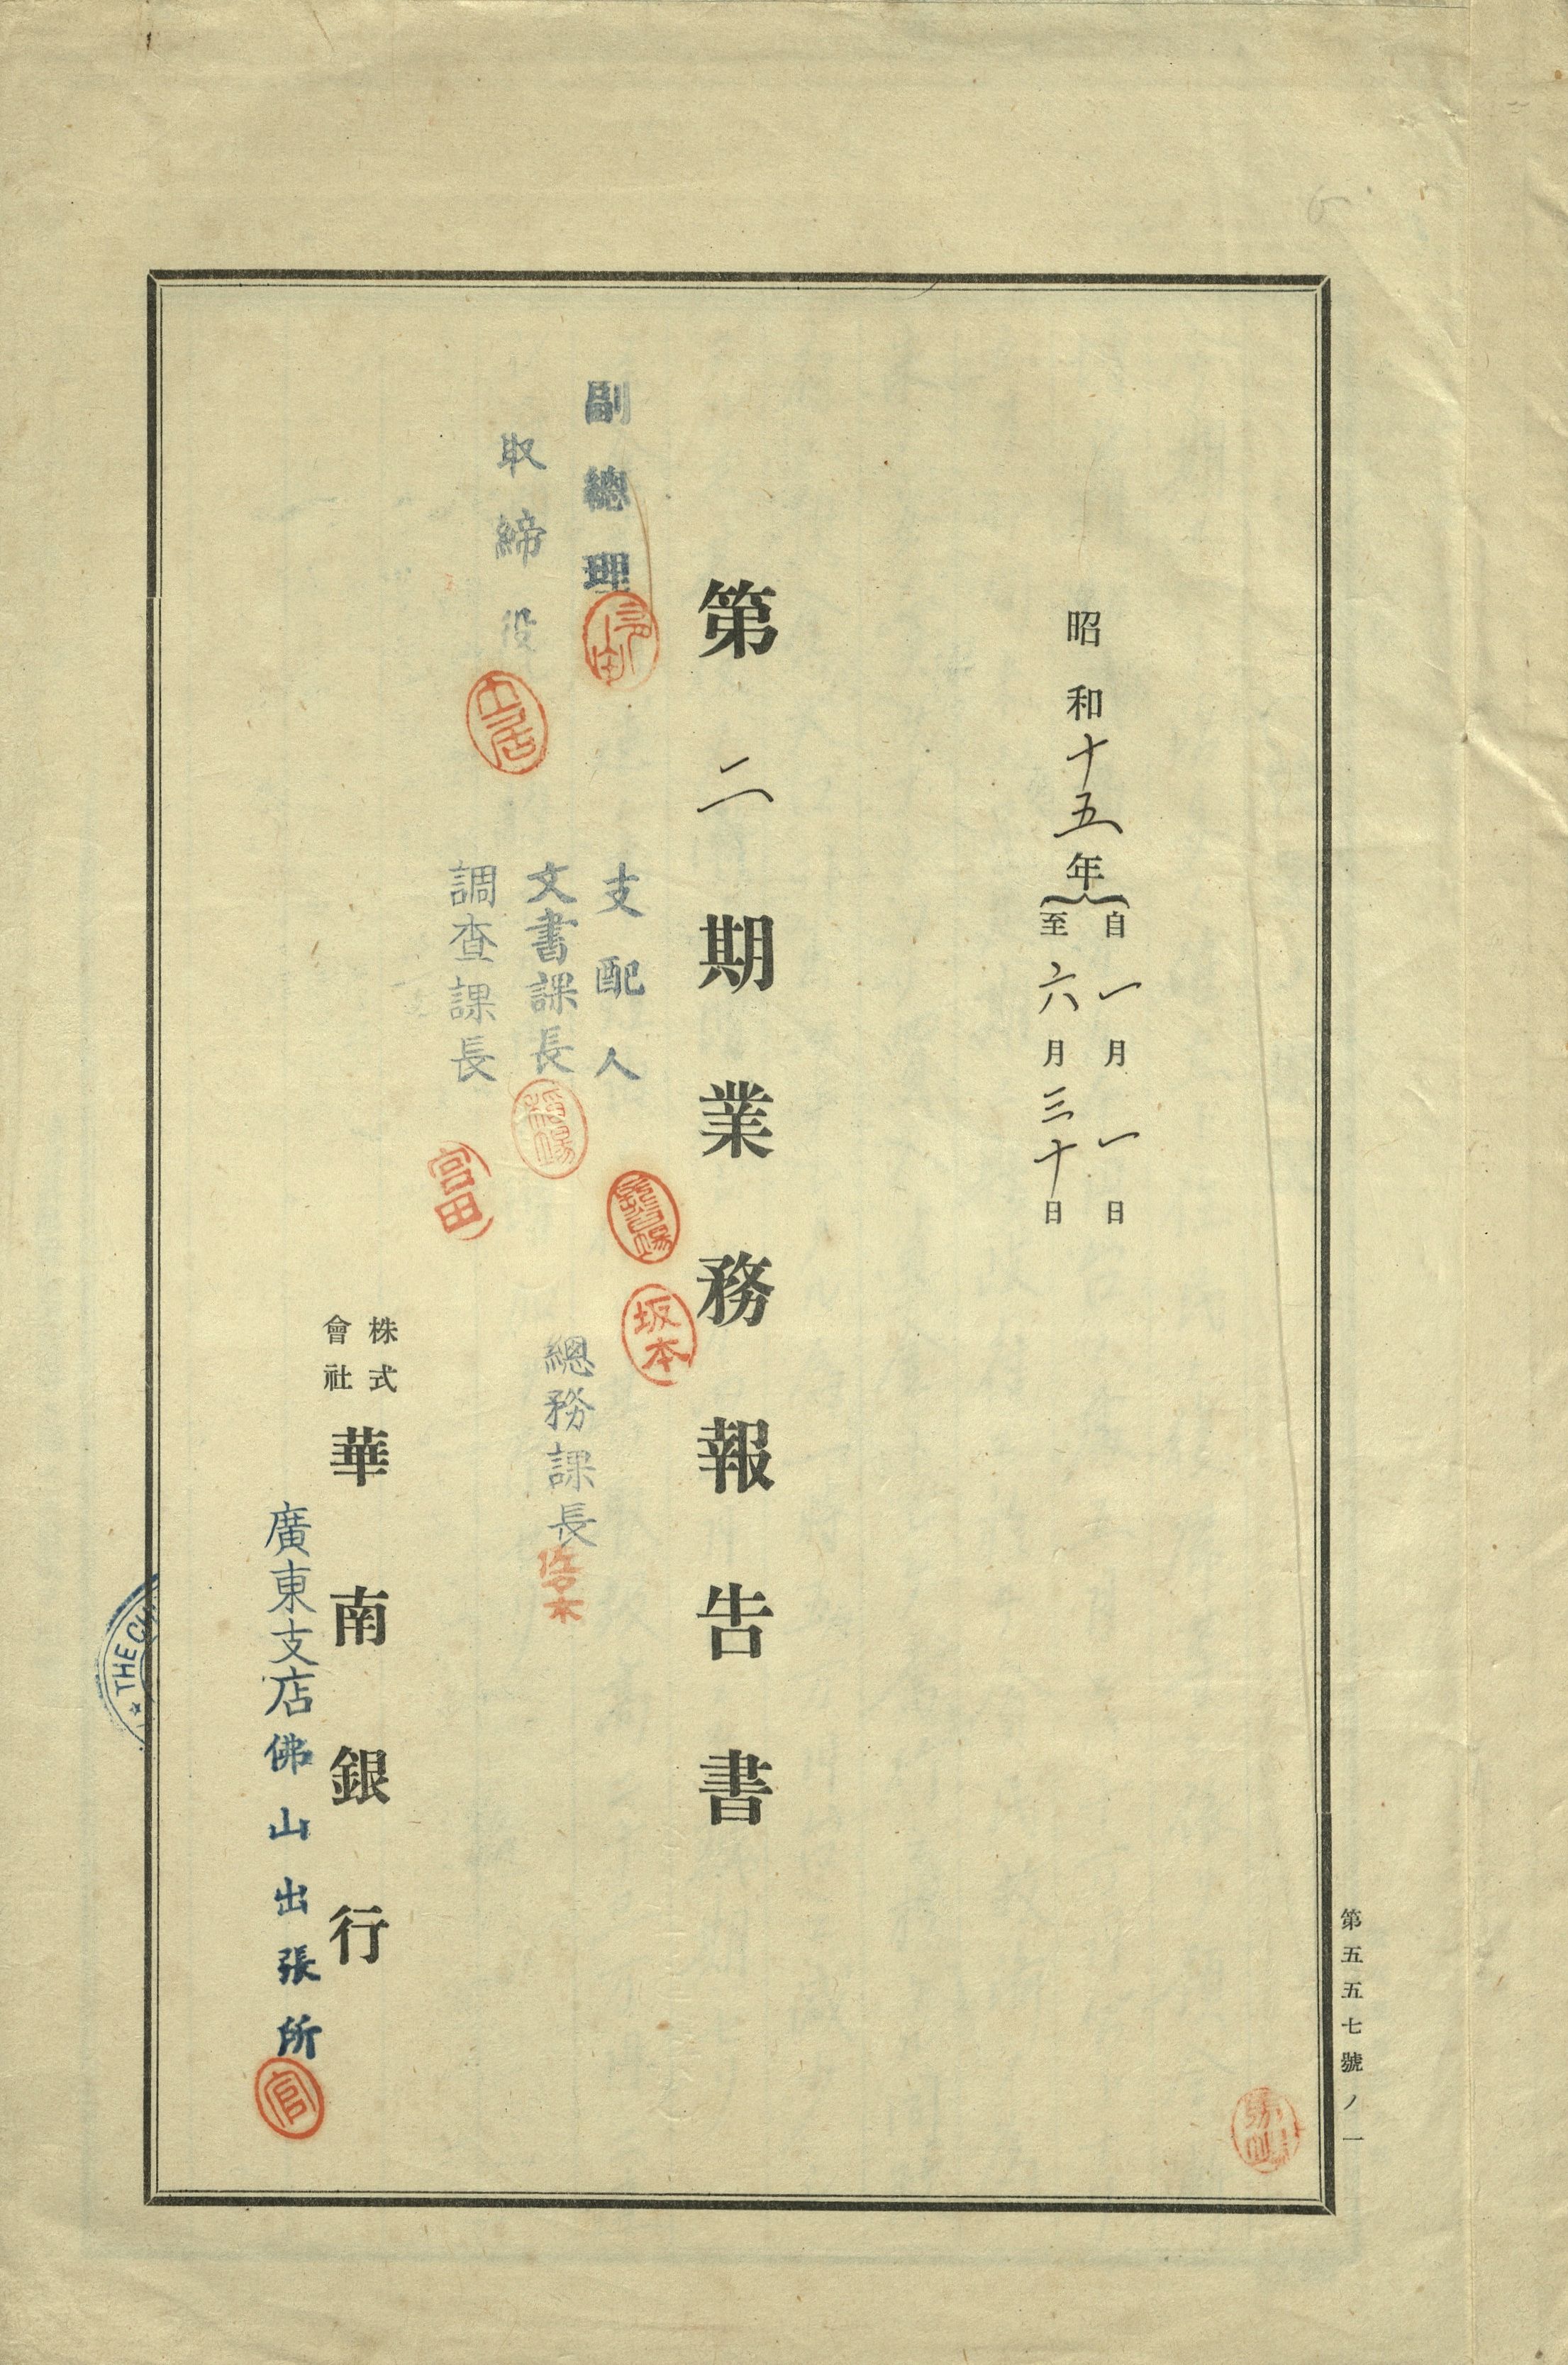 第五五七號ノ一
昭和十五年
自一月一日
至六月三十日
第二期業務報告書
副總理
取締役
支配人
文書課長
調查課長
坂本
富田
總務課長
佐々木
株式會社
華南銀行
廣東支店佛山出張所
官
THE CH